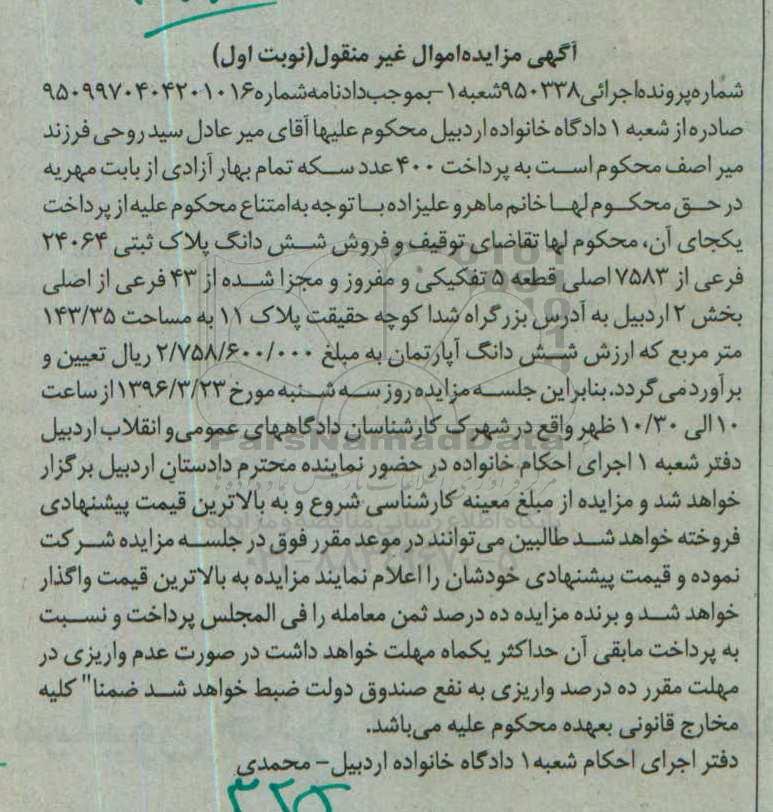 آگهی مزایده اموال غیر منقول (نوبت اول)
شماره پرونده اجرائی ۹۵۰۳۳۸ شعبه ۱- بموجب دادنامه شماره ۹۵۰۹۹۷۰۴۰۴۲۰۱۰۱۶
صادره از شعبه ۱ دادگاه خانواده اردبیل محکوم علیها آقای میر عادل سید روحی فرزند
میر اصف محکوم است به پرداخت ۴۰۰ عدد سکه تمام بهار آزادی از بابت مهریه
در حق محکوم لها خانم ماهرو علیزاده با توجه به امتناع محکوم علیه از پرداخت
یکجای آن، محکوم لها تقاضای توقیف و فروش شش دانگ پلاک ثبتی ۲۴۰۶۴
فرعی از ۷۵۸۳ اصلی قطعه ۵ تفکیکی و مفروز و مجزا شده از ۴۳ فرعی از اصلی
بخش ۲ اردبیل به آدرس بزرگراه شدا کوچه حقیقت پلاک ۱۱ به مساحت ۱۴۳/۳۵
متر مربع که ارزش شش دانگ آپارتمان به مبلغ ۲/۷۵۸/۶۰۰/۰۰۰ ریال تعیین و
برآورد می گردد. بنابراین جلسه مزایده روز سه شنبه مورخ ۱۳۹۶/۳/۲۳ از ساعت
۱۰ الی ۱۰/۳۰ ظهر واقع در شهرک کارشناسان دادگاههای عمومی و انقلاب اردبیل
دفتر شعبه ۱ اجرای احکام خانواده در حضور نماینده محترم دادستان اردبیل برگزار
خواهد شد و مزایده از مبلغ معینه کارشناسی شروع و به بالاترین قیمت پیشنهادی
فروخته خواهد شد طالبین می توانند در موعد مقرر فوق در جلسه مزایده شرکت
نموده و قیمت پیشنهادی خودشان را اعلام نمایند مزایده به بالاترین قیمت واگذار
خواهد شد و برنده مزایده ده درصد ثمن معامله را فی المجلس پرداخت و نسبت
به پرداخت مابقی آن حداکثر یکماه مهلت خواهد داشت در صورت عدم واریزی در
مهلت مقرر ده درصد واریزی به نفع صندوق دولت ضبط خواهد شد ضمنا" کلیه
مخارج قانونی بعهده محکوم علیه می باشد.
دفتر اجرای احکام شعبه ۱ دادگاه خانواده اردبیل - محمدی
ParsNamadData